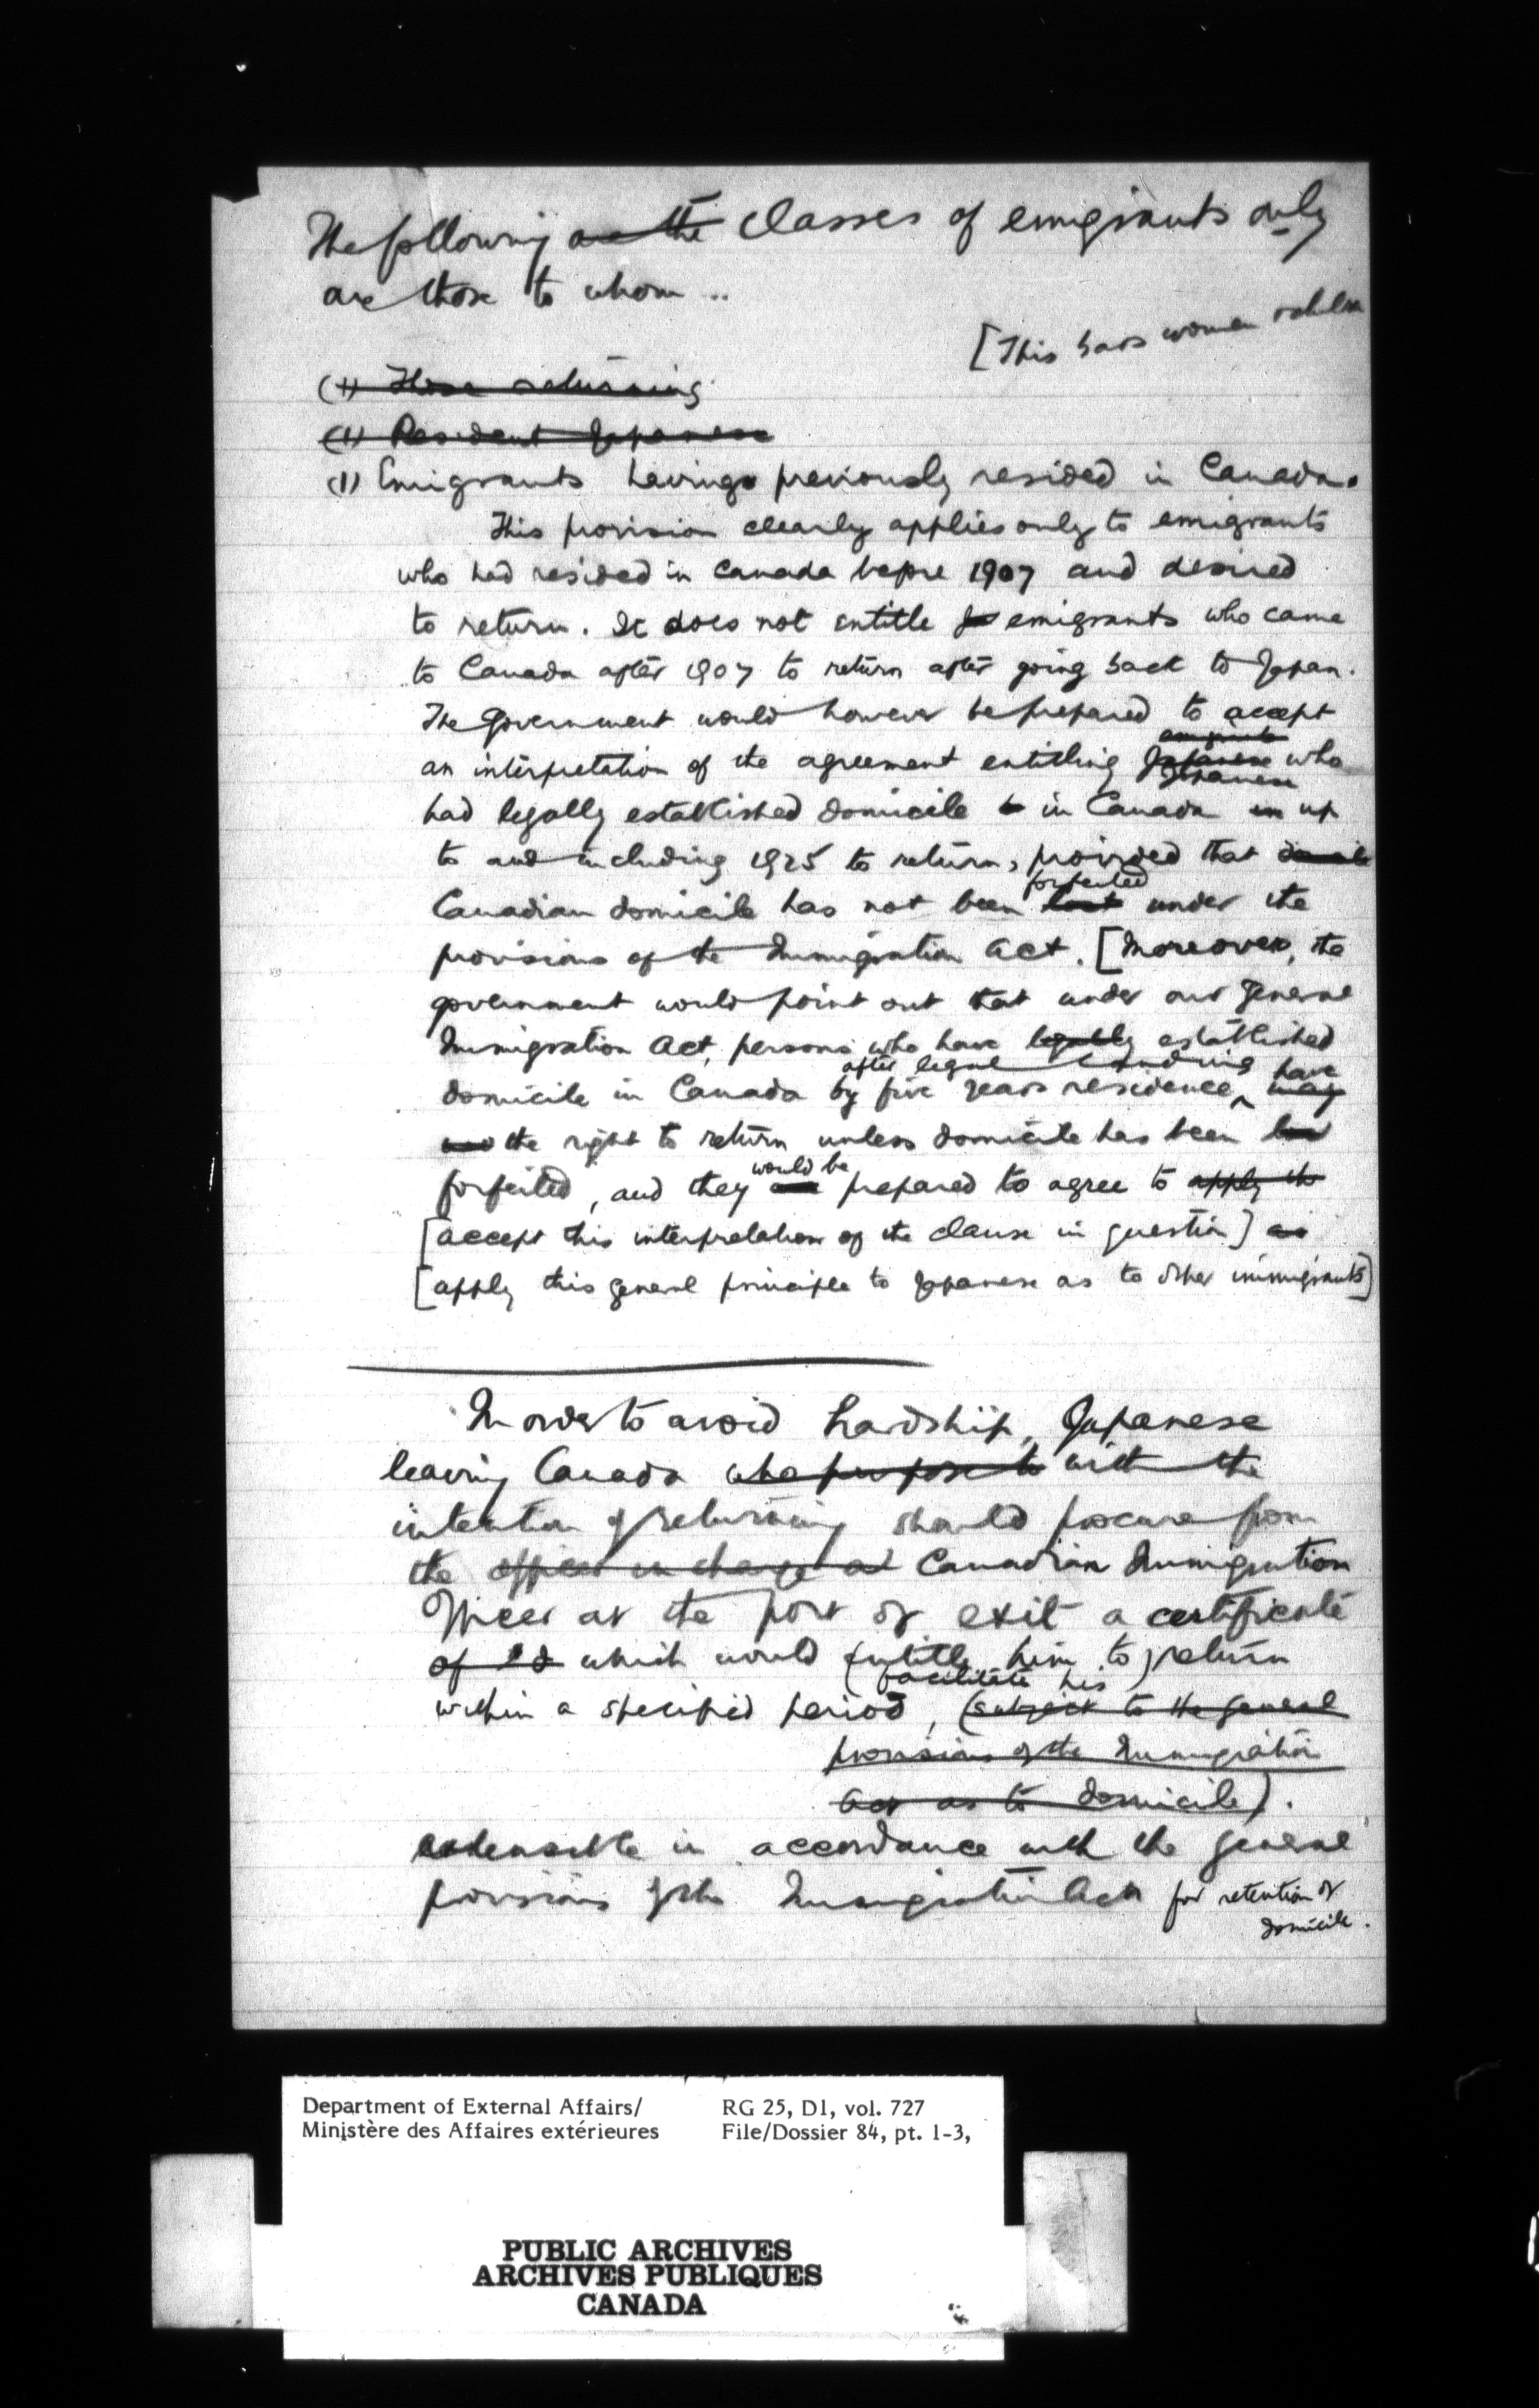 The following are the classes of emigrants only
are those to whom ..
[This bars women
(1) Those returning
(1) Resident Japanese
(1) Emigrants having previously resided in Canada.
This provision clearly applies only to emigrants
who had resided in Canada before 1907 and desired
to return. It does not entitle emigrants who came
to Canada after 1907 to return after going back to Japan.
The Government would however be prepared to accept
emigrants
an interpretation of the agreement entitling Japanese who
Japanese
had legally established domicile in Canada in up
to and including 1925 to return, provided that domicile
forfeited
Canadian domicile has not been lost under the
provisions of the Immigration Act. [Moreover, the
government would point out that under our general
Immigration Act, persons who have legally established
after legal landing have
domicile in Canada by five years residence may
the right to return unless domicile has been
would be
forfeited, and they are prepared to agree to apply the
[accept this interpretation of the clause in question] as
[apply this general principle to Japanese as to other immigrants]
In order to avoid hardship, Japanese
leaving Canada who purpose to with the
intention of returning should procure from
the officer in charge at Canadian Immigration
Officer at the port of exit a certificate
of which would (entitle him to) return
facilitate his
within a specified period, (subject to the general
provisions of the Immigration
Act as to domicile).
extensible in accordance with the general
provisions of the Immigration Act for retention of
domicile.
Department of External Affairs/
Ministère des Affaires extérieures
RG 25, D1, vol. 727
File/Dossier 84, pt. 1-3,
PUBLIC ARCHIVES
ARCHIVES PUBLIQUES
CANADA